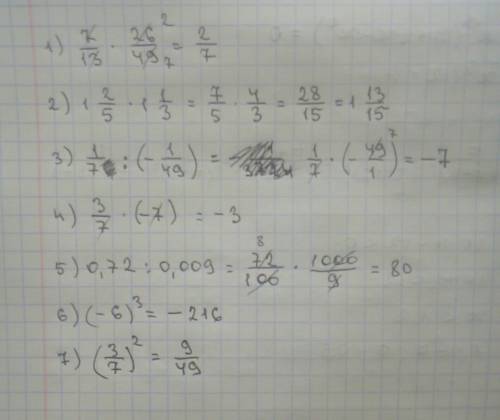 1) 7/13 · 26²/49₇ = 2/7
2) 1 2/5 · 1 1/3 = 7/5 · 4/3 = 28/15 = 1 13/15
3) 1/7 : (- 1/49) = 1/7 · (- 49⁷/1) = -7
4) 3/7 · (-7) = -3
5) 0,72 : 0,009 = 72⁸/100 · 1000/9 = 80
6) (-6)³ = -216
7) (3/7)² = 9/49